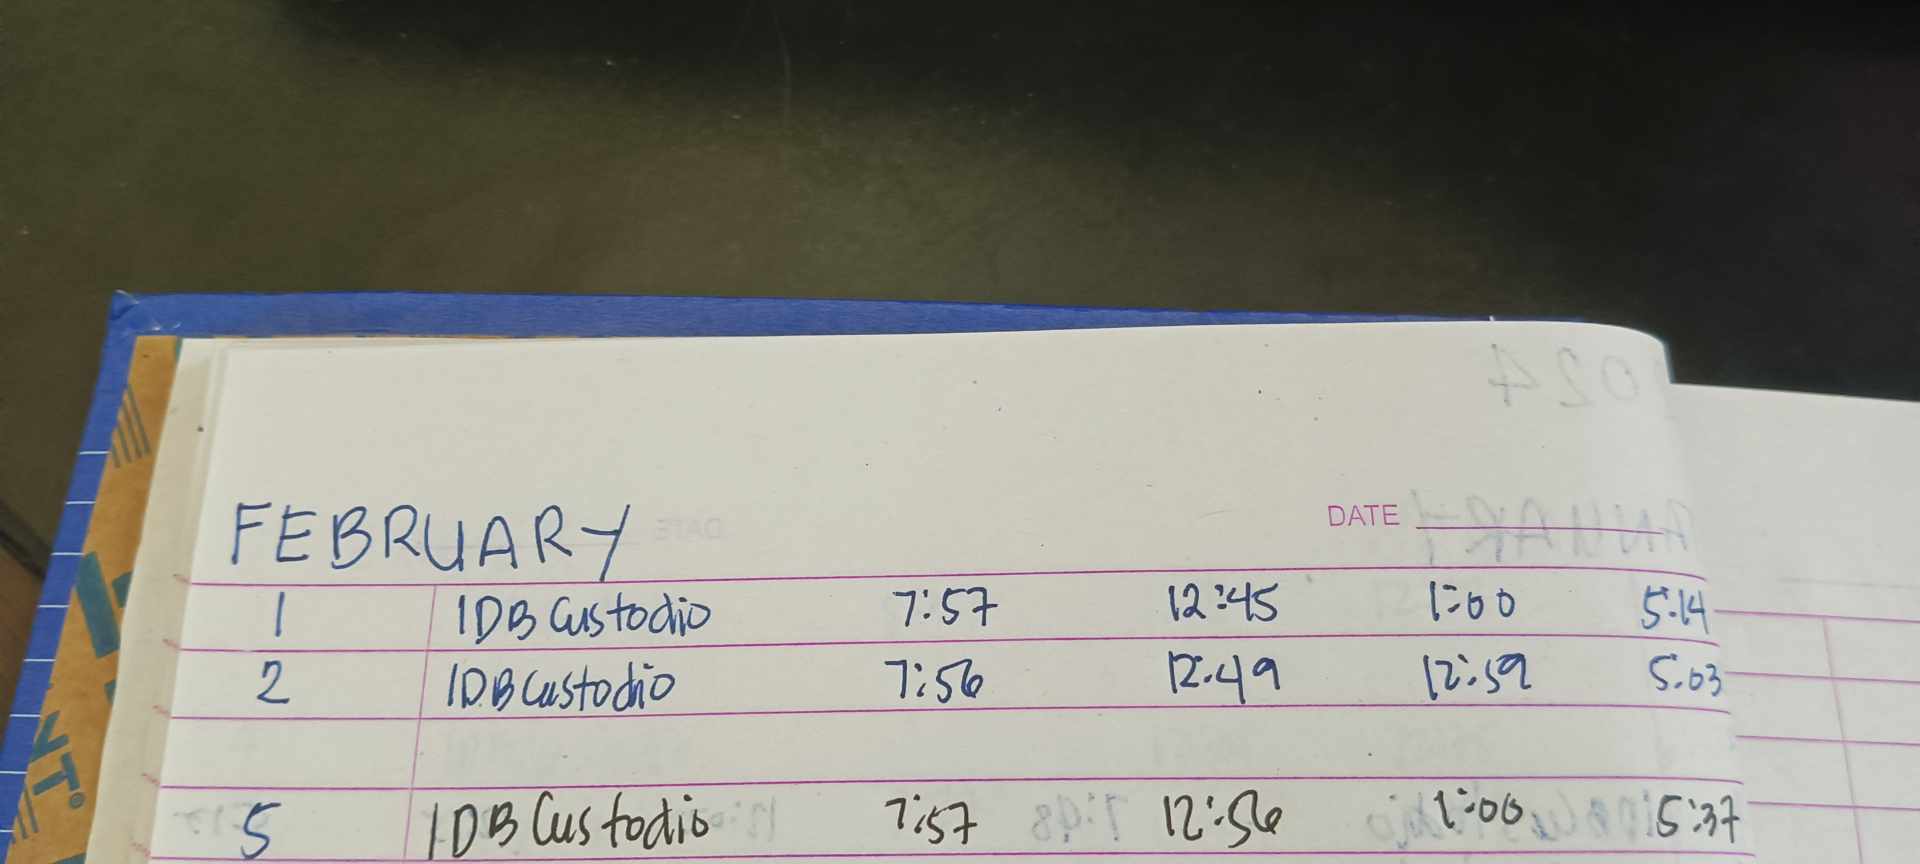 024
FEBRUARY DATE
1 IDB Custodio 7:57 12:45 1:00 5:14
2 IDB Custodio 7:56 12:49 12:59 5:03
5 IDB Custodio 7:57 12:56 1:00 5:37